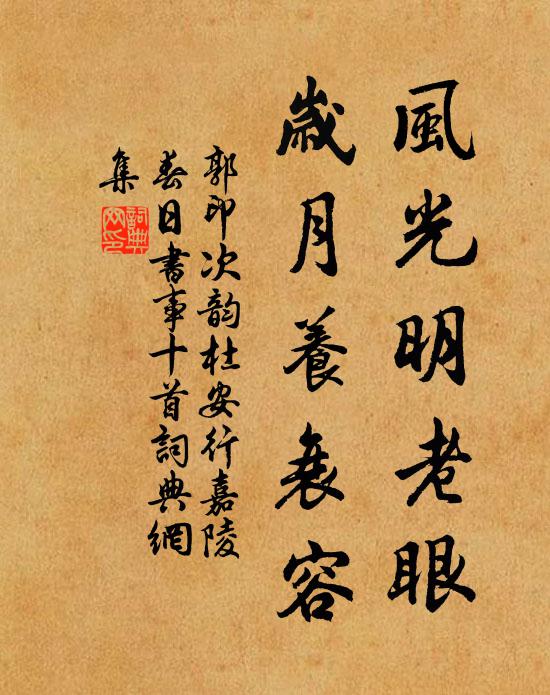 風光明老眼
歲月養衰容
郭印次韵杜安行嘉陵
春日書事十首詞典網
集
詞典
网印